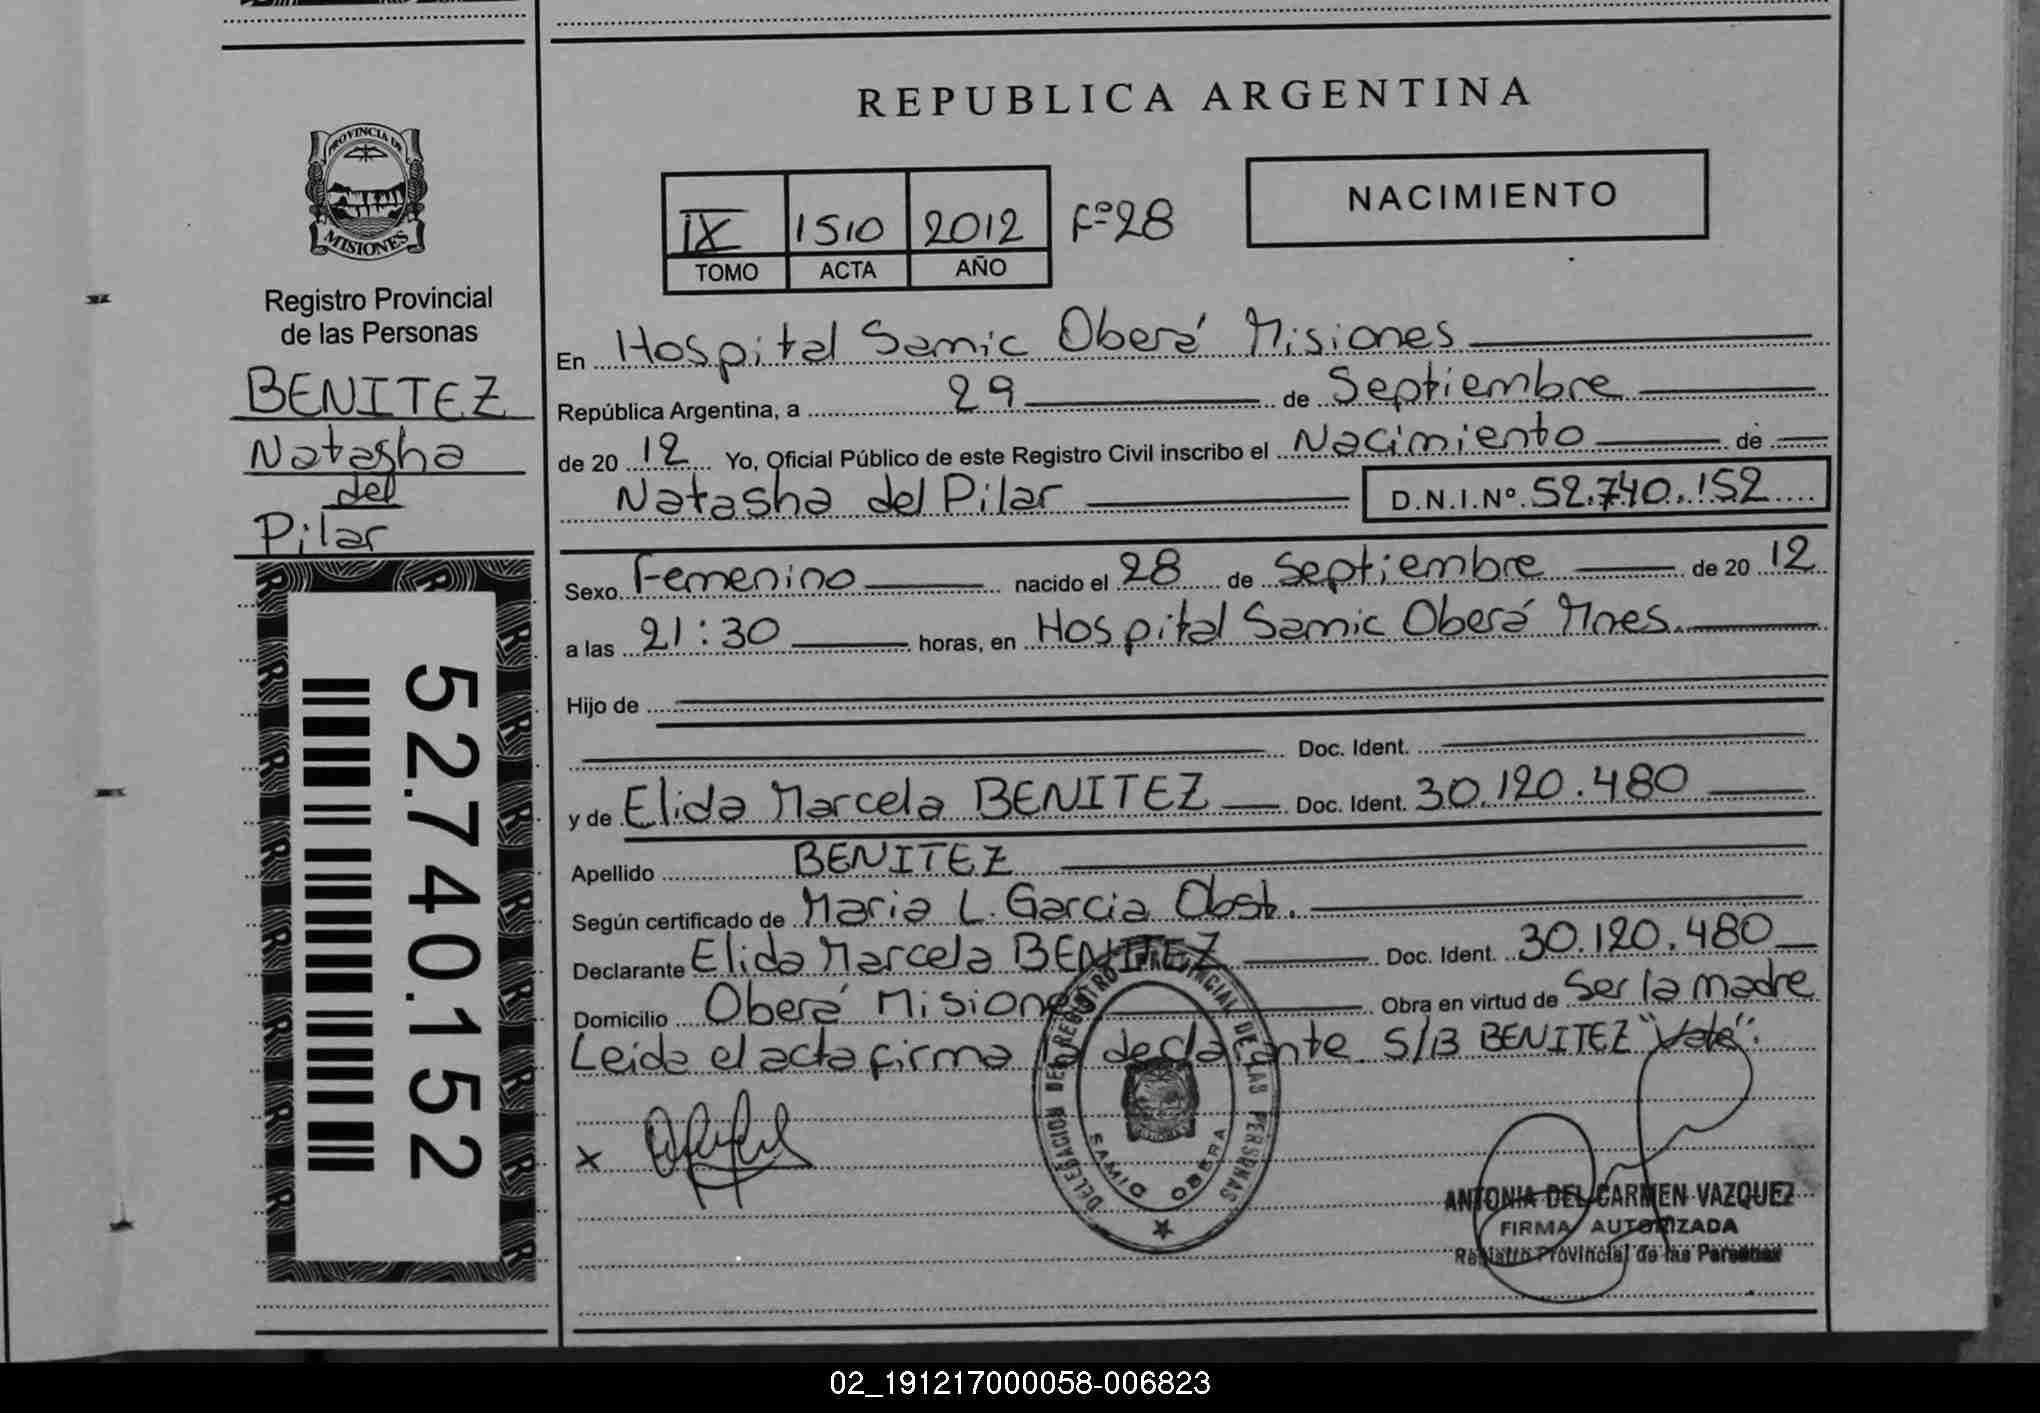 PROVINCIA DE
MISIONES
Registro Provincial
de las Personas
BENITEZ
Natasha
del
Pilar
52.740.152
REPUBLICA ARGENTINA
IX 1510 2012 Fº28
TOMO ACTA AÑO
NACIMIENTO
En Hospital Samic Oberá Misiones
República Argentina, a 29 de Septiembre
de 20 12 Yo, Oficial Público de este Registro Civil inscribo el Nacimiento de
Natasha del Pilar D.N.I.Nº. 52.740.152
Sexo Femenino nacido el 28 de Septiembre de 20 12
a las 21:30 horas, en Hospital Samic Oberá Mnes.
Hijo de
Doc. Ident.
y de Elida Marcela BENITEZ Doc. Ident. 30.120.480
Apellido BENITEZ
Según certificado de Maria L. Garcia Obst.
Declarante Elida Marcela BENITEZ Doc. Ident. 30.120.480
Domicilio Oberá Misiones Obra en virtud de Ser la madre
Leida el acta firma la declarante S/B BENITEZ "Vale".
X
DELEGACION DEL REGISTRO PROVINCIAL DE LAS PERSONAS
SAMIC OBERA
ANTONIA DEL CARMEN VAZQUEZ
FIRMA AUTORIZADA
Registro Provincial de las Personas
02_191217000058-006823